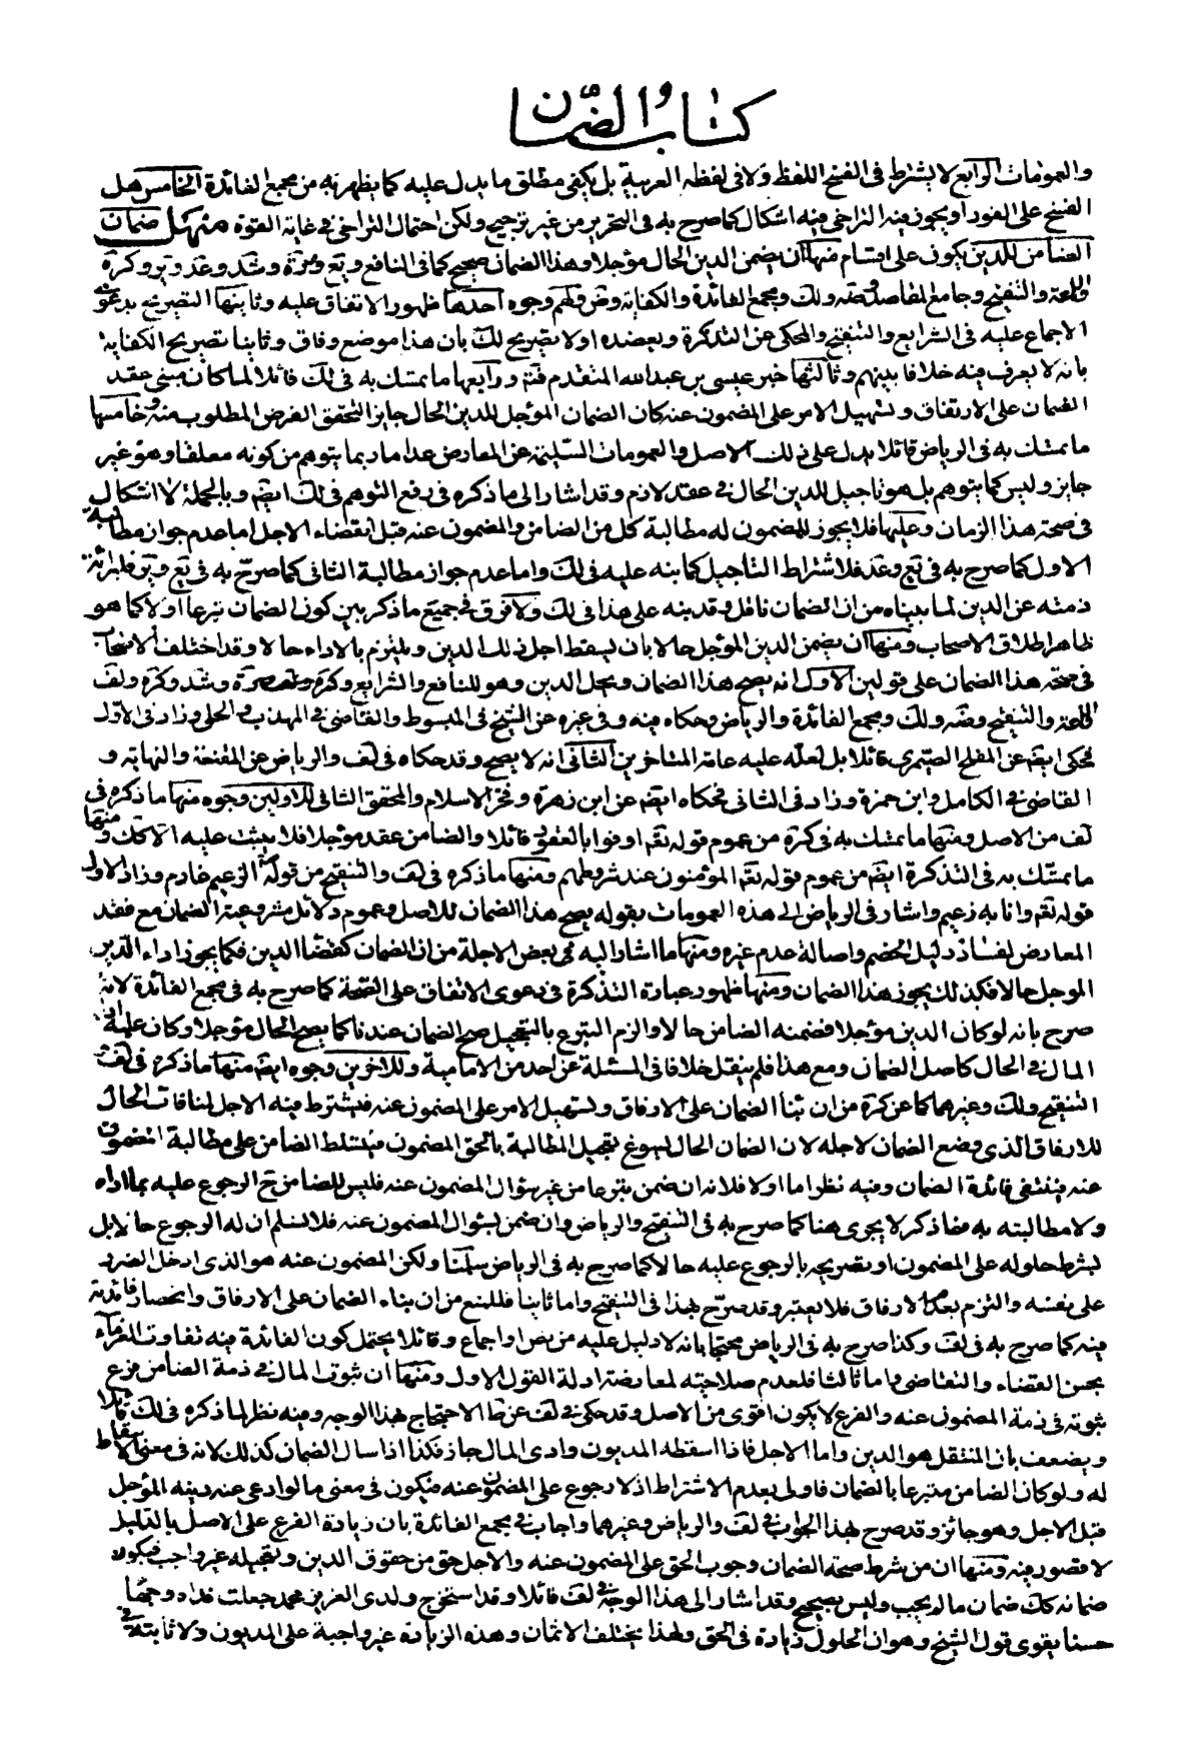 كتاب الضمان
والعمومات الرابع لا يشترط في الفسخ اللفظ ولا في لفظه العربية بل يكفي مطلق ما يدل عليه كما يظهر به من مجمع الفائدة الخامس هل
الفسخ على الفور او يجوز فيه التراخي فيه اشكال كما صرح به في التحرير من غير ترجيح ولكن احتمال التراخي في غاية القوة منهل ضمان
الضامن للدين يكون على اقسام منها ان يضمن الدين الحال مؤجلا وهذا الضمان صحيح كما في النافع ويع وصرة وشد وعد وير وكرة
والتنقيح وجامع المقاصد وضه ولك ومجمع الفائدة والكفاية وض ولهم وجوه احدها ظهور الاتفاق عليه وثانيها التصريح بدعوى
الاجماع عليه في الشرايع والتنقيح والمحكى عن التذكرة ويعضده اولا تصريح لك بان هذا موضع وفاق وثانيا تصريح الكفاية
بانه لا يعرف فيه خلافا بينهم وثالثها خبر عيسى بن عبدالله المتقدم فتم ورابعها ما تمسك به في لك قائلا لما كان مبنى عقد
الضمان على الارتفاق وتسهيل الامر على المضمون عنه كان الضمان المؤجل للدين الحال جايزا لتحقق الغرض المطلوب منه وخامسها
ما تمسك به في الرياض قائلا يدل على ذلك الاصل والعمومات السليمة عن المعارض عدا ما ربما يتوهم من كونه معلقا وهو غير
جايز وليس كما يتوهم بل هو تاجيل للدين الحال في عقد لازم وقد اشار الى ما ذكره في رفع التوهم في لك ايضا وبالجملة لا اشكال
في صحة هذا الزمان وعليها فلا يجوز للمضمون له مطالبة كل من الضامن والمضمون عنه قبل انقضاء الاجل اما عدم جواز مطالبة
الاول كما صرح به في يع وعد فلاشتراط التاجيل كما نبه عليه في لك واما عدم جواز مطالبة الثاني كما صرح به في يع وير فلبرائة
ذمته عن الدين لما بيناه من ان الضمان ناقل وقد نبه على هذا في لك ولا فرق في جميع ما ذكر بين كون الضمان تبرعا اولا كما هو
ظاهر اطلاق الاصحاب ومنها ان يضمن الدين المؤجل حالا بان يسقط اجل ذلك الدين ويلتزم بالاداء حالا وقد اختلف الاصحاب
في صحة هذا الضمان على قولين الاول انه يصح هذا الضمان ويحل الدين وهو للنافع والشرايع وكرة وصرة وشد وكرة ولف
والتنقيح وضه ولك ومجمع الفائدة والرياض وحكاه فيه وفي غيره عن الشيخ في المبسوط والقاضي في المهذب والحلي وزاد في الاول
فحكى ايضا عن المفلح الصيمري قائلا بل لعله عليه عامة المتاخرين الثاني انه لا يصح وقد حكاه في لف والرياض عن المقنعة والنهاية و
القاضي في الكامل وابن حمزة وزاد في الثاني فحكاه ايضا عن ابن زهرة وفخر الاسلام والمحقق الثاني للاولين وجوه منها ما ذكره في
لف من الاصل ومنها ما تمسك به في كرة من عموم قوله تعالى اوفوا بالعقود قائلا والضامن عقد مؤجلا فلا يثبت عليه الا كك ومنها
ما تمسك به في التذكرة ايضا من عموم قوله تعالى المؤمنون عند شروطهم ومنها ما ذكره في لف والتنقيح من قوله الزعيم غارم وزاد الاول
قوله تعالى وانا به زعيم واشار في الرياض الى هذه العمومات بقوله يصح هذا الضمان للاصل وعموم دلائل مشروعية الضمان مع فقد
المعارض لفساد دليل الخصم واصالة عدم غيره ومنها ما اشار اليه في بعض الاجلة من ان الضمان كقضا الدين فكما يجوز اداء الدين
الموجل حالا فكذلك يجوز هذا الضمان ومنها ظهور عبارة التذكرة في دعوى الاتفاق على الصحة كما صرح به في مجمع الفائدة لانه
صرح بانه لو كان الدين مؤجلا فضمنه الضامن حالا والزم التبرع بالتعجيل صح الضمان عندنا كما يصح الحال مؤجلا وكان عليه اداء
المال في الحال كاصل الضمان ومع هذا فلم ينقل خلافا في المسئلة عن احد من الامامية وللاخرين وجوه ايضا منها ما ذكره في لف
التنقيح ولك وغيرهما كما عن كرة من ان بنأ الضمان على الارفاق وتسهيل الامر على المضمون عنه فيشترط فيه الاجل لمنافات الحال
للارفاق الذي وضع الضمان لاجله لان الضمان الحال يسوغ تعجيل المطالبة بالحق المضمون فيتسلط الضامن على مطالبة المضمون
عنه فينتفي فائدة الضمان وفيه نظر اما اولا فلانه ان ضمن متبرعا من غير سؤال المضمون عنه فليس للضامن ح الرجوع عليه بما اداه
ولا مطالبته به فما ذكر لا يجرى هنا كما صرح به في التنقيح والرياض وان ضمن بسؤال المضمون عنه فلا نسلم ان له الرجوع حالا بل
يشرط حلوله على المضمون او تصريحه بالرجوع عليه حالا كما صرح به في الرياض سلمنا ولكن المضمون عنه هو الذي ادخل الضرر
على نفسه والتزم بعدم الارفاق فلا يعتبر وقد صرح بهذا في التنقيح واما ثانيا فللمنع من ان بناء الضمان على الارفاق وانحصار فائدته
فيه كما صرح به في لف وكذا صرح به في الرياض محتجا بانه لا دليل عليه من نص او اجماع وقائلا يحتمل كون الفائدة فيه تفاوت الغرماء
بحسن القضاء والتقاضي واما ثالثا فلعدم صلاحيته لمعارضة ادلة القول الاول ومنها ان ثبوت المال في ذمة الضامن فرع
ثبوته في ذمة المضمون عنه والفرع لا يكون اقوى من الاصل وقد حكى في لف عن ط الاحتجاج بهذا الوجه وفيه نظر لما ذكره في لك قائلا
ويضعف بان المنتقل هو الدين واما الاجل فاذا اسقطه المديون وادى المال جاز فكذا اذا سال الضمان كذلك لانه في معنى الاسقاط
له ولو كان الضامن متبرعا بالضمان فاولى بعدم الاشتراط اذ لا رجوع على المضمون عنه فيكون في معنى ما لو ادعى عنه دينه المؤجل
قبل الاجل وهو جائز وقد صرح بهذا الجواب في لف والرياض وغيرهما واجاب في مجمع الفائدة بان زيادة الفرع على الاصل بالدليل
لا قصور فيه ومنها ان من شرط صحة الضمان وجوب الحق على المضمون عنه والاجل حق من حقوق الدين وتعجيله غير واجب فيكون
ضمانه كك ضمان ما لم يجب وليس بصحيح وقد اشار الى هذا الوجه في لف قائلا وقد استخرج ولدي العزيز محمد جعلت فداه وجها
حسنا يقوى قول الشيخ وهو ان الحلول زيادة في الحق ولهذا يختلف الاثمان وهذه الزيادة غير واجبة على المديون ولا ثابتة في